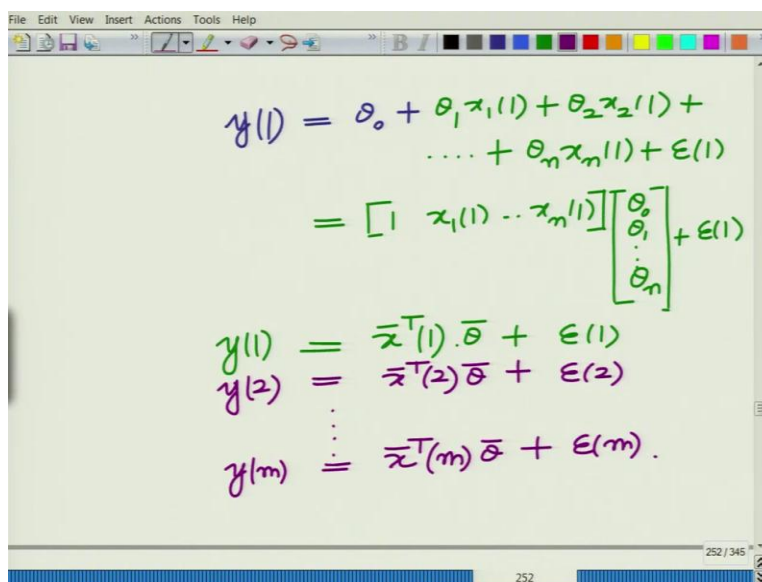 File Edit View Insert Actions Tools Help
B I
y(1) = θ₀ + θ₁x₁(1) + θ₂x₂(1) +
.... + θₙxₙ(1) + ε(1)
= [1 x₁(1) .. xₙ(1)] [θ₀ θ₁ ⋮ θₙ] + ε(1)
y(1) = x̄ᵀ(1).θ̄ + ε(1)
y(2) = x̄ᵀ(2)θ̄ + ε(2)
⋮
y(m) = x̄ᵀ(m)θ̄ + ε(m).
252 / 345
252